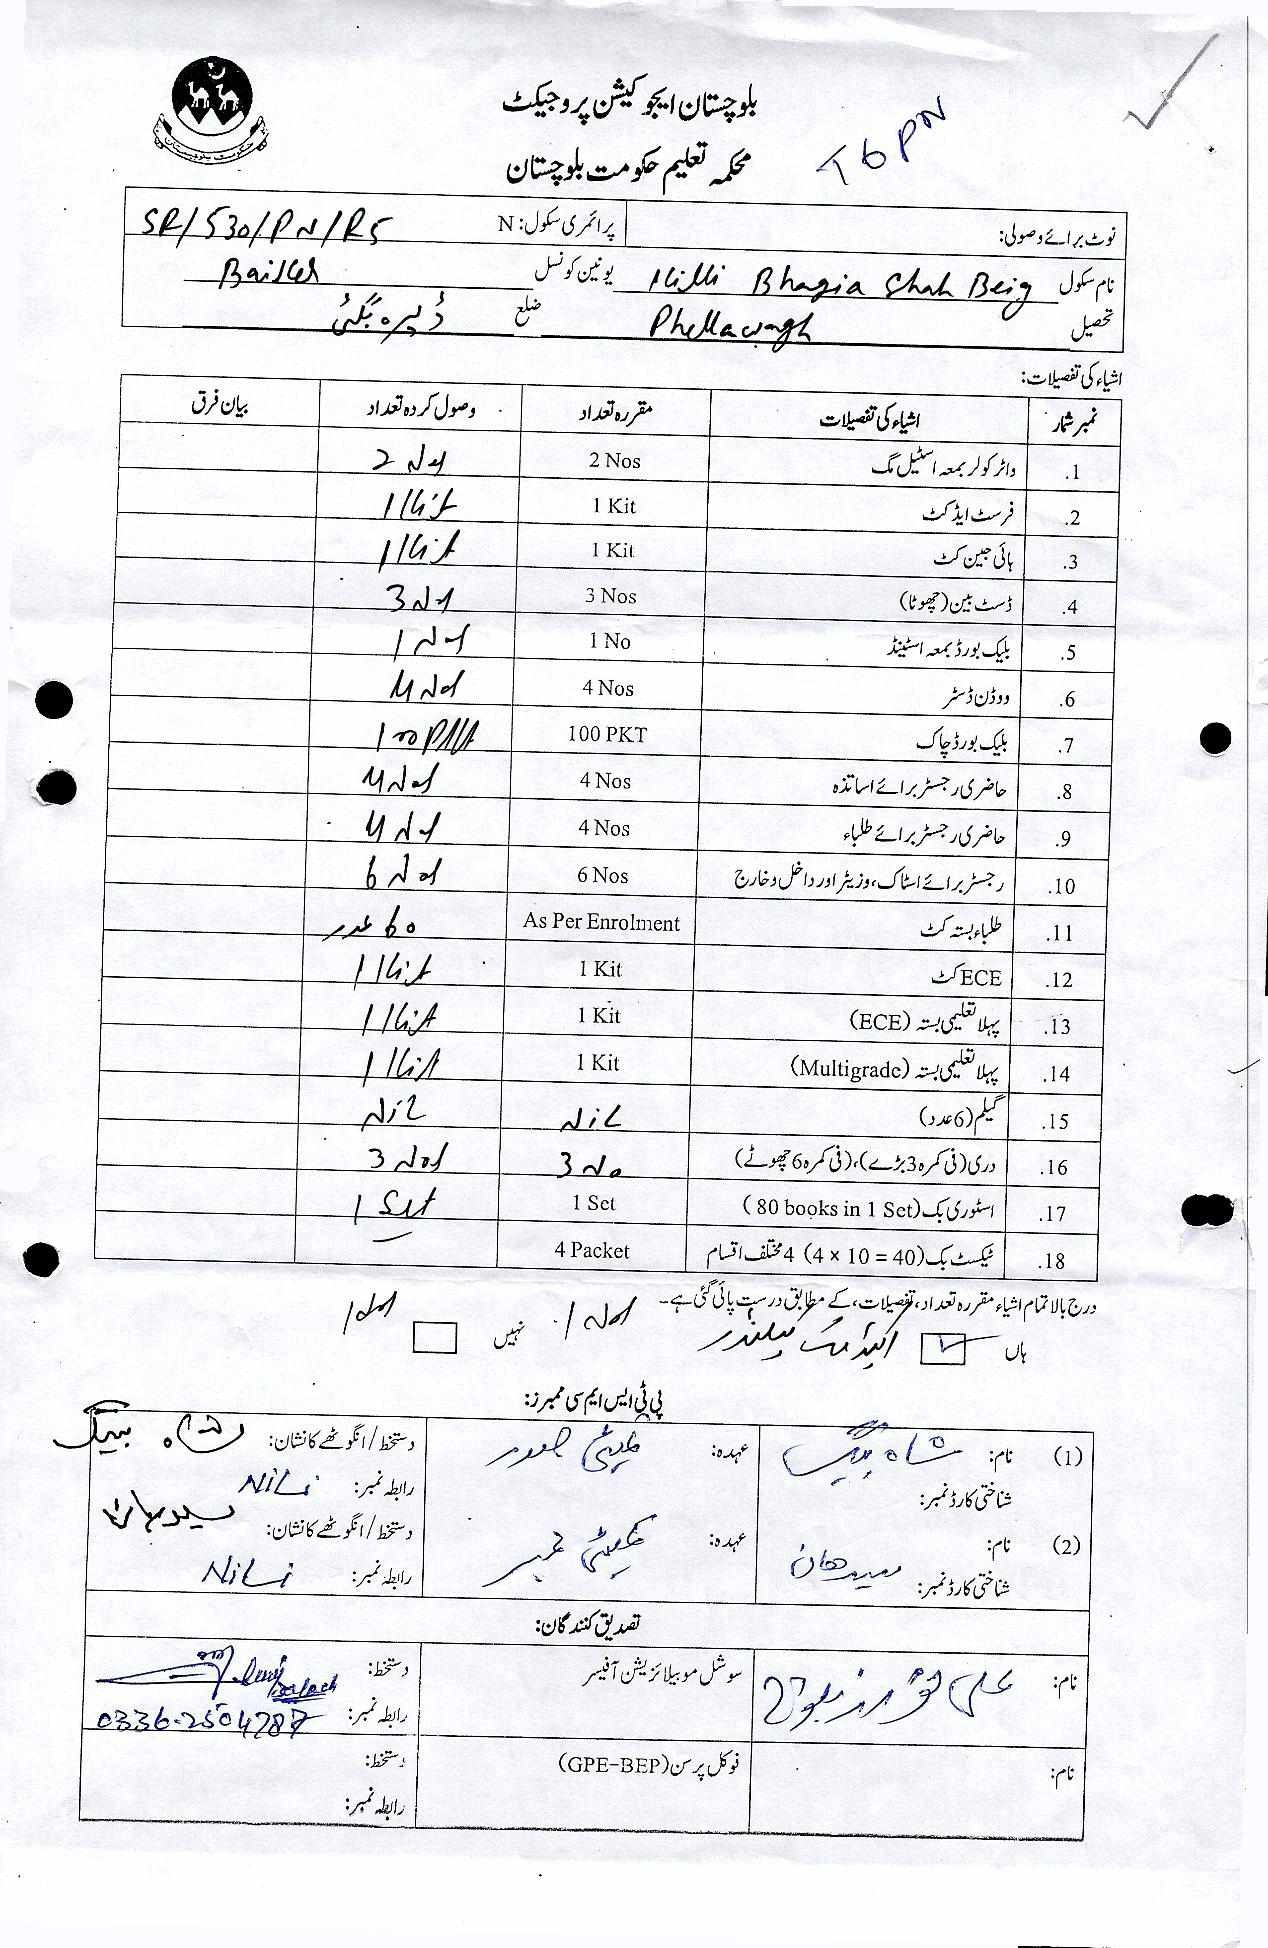 حکومت بلوچستان
بلوچستان ایجوکیشن پروجیکٹ
محکمہ تعلیم حکومت بلوچستان
T6PN
نوٹ برائے وصولی: پرائمری سکول: N SR/530/PN/R5
نام سکول Killi Bhagia Shah Beig یونین کونسل Baiker
تحصیل Phellawagh ضلع ڈیرہ بگٹی
اشیاء کی تفصیلات:
نمبر شمار اشیاء کی تفصیلات مقررہ تعداد وصول کردہ تعداد بیان فرق
1. واٹر کولر بمعہ اسٹیل مگ 2 Nos 2 Nos
2. فرسٹ ایڈ کٹ 1 Kit 1 Kit
3. ہائی جین کٹ 1 Kit 1 Kit
4. ڈسٹ بین (چھوٹا) 3 Nos 3 Nos
5. بلیک بورڈ بمعہ اسٹینڈ 1 No 1 Nos
6. ووڈن ڈسٹر 4 Nos 4 Nos
7. بلیک بورڈ چاک 100 PKT 100 PKT
8. حاضری رجسٹر برائے اساتذہ 4 Nos 4 Nos
9. حاضری رجسٹر برائے طلباء 4 Nos 4 Nos
10. رجسٹر برائے اسٹاک، وزیٹر اور داخل و خارج 6 Nos 6 Nos
11. طلباء بستہ کٹ As Per Enrolment 60 عدد
12. ECE کٹ 1 Kit 1 Kit
13. پہلا تعلیمی بستہ (ECE) 1 Kit 1 Kit
14. پہلا تعلیمی بستہ (Multigrade) 1 Kit 1 Kit
15. گیلم (6 عدد) Nil Nil
16. دری (فی کمرہ 3 بڑے)، (فی کمرہ 6 چھوٹے) 3 No 3 Nos
17. اسٹوری بک (80 books in 1 Set) 1 Set 1 Set
18. ٹیکسٹ بک (4 × 10 = 40) 4 مختلف اقسام 4 Packet
درج بالا تمام اشیاء مقررہ تعداد، تفصیلات، کے مطابق درست پائی گئی ہے۔
ہاں کیلنڈر 1 Nos نہیں 1 Nos
پی ٹی ایس ایم سی ممبرز:
(1) نام: شاہ بیگ عہدہ: کمیٹی صدر دستخط / انگوٹھے کا نشان: شاہ بیگ
شناختی کارڈ نمبر: رابطہ نمبر: Nil
(2) نام: سیدھان عہدہ: کمیٹی ممبر دستخط / انگوٹھے کا نشان: سیدھان
شناختی کارڈ نمبر: رابطہ نمبر: Nil
تصدیق کنندگان:
نام: علی نواز بلوچ سوشل موبیلائزیشن آفیسر دستخط: Baloch
رابطہ نمبر: 0336-2504787
نام: فوکل پرسن (GPE-BEP) دستخط:
رابطہ نمبر: